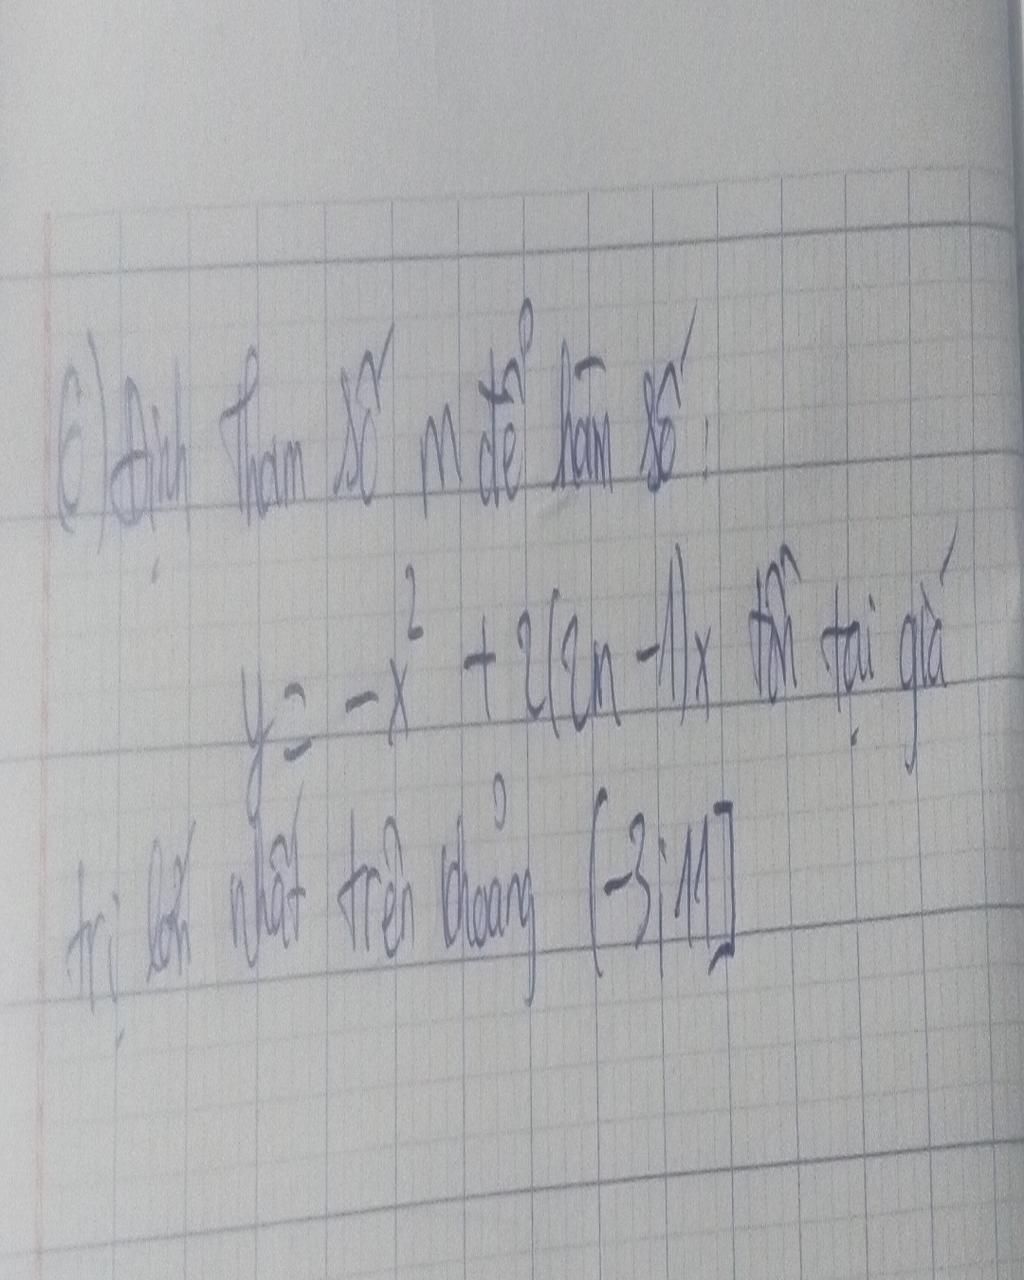 c) Định tham số m để hàm số:
y = -x² + 2(2m-1)x tồn tại giá
trị lớn nhất trên khoảng (-3; 11]